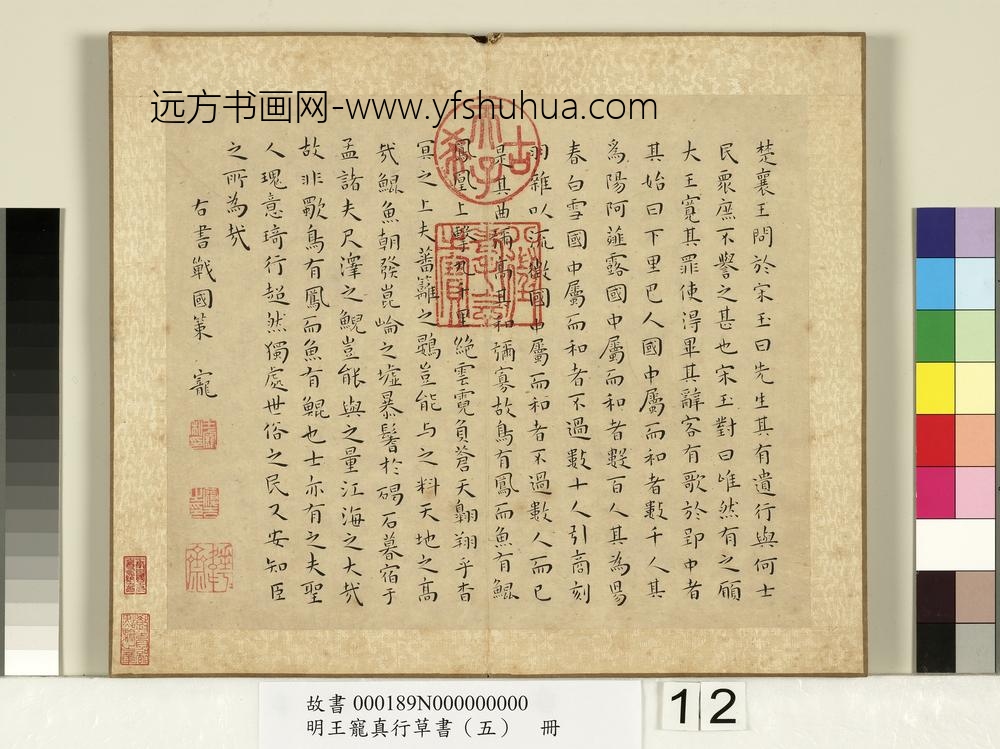 远方书画网-www.yfshuhua.com
楚襄王問於宋玉曰先生其有遺行與何士
民眾庶不譽之甚也宋玉對曰唯然有之願
大王寬其罪使得畢其辭客有歌於郢中者
其始曰下里巴人國中屬而和者數千人其
為陽阿薤露國中屬而和者數百人其為陽
春白雪國中屬而和者不過數十人引商刻
羽雜以流徵國中屬而和者不過數人而已
是其曲彌高其和彌寡故鳥有鳳而魚有鯤
鳳凰上擊九千里絕雲霓負蒼天翱翔乎杳
冥之上夫蕃籬之鷃豈能与之料天地之高
哉鯤魚朝發崑崙之墟暴鬐於碣石暮宿于
孟諸夫尺澤之鯢豈能與之量江海之大哉
故非獨鳥有鳳而魚有鯤也士亦有之夫聖
人瑰意琦行超然獨處世俗之民又安知臣
之所為哉
右書戰國策 寵
古希天子
故書 000189N000000000
明王寵真行草書（五） 冊
12